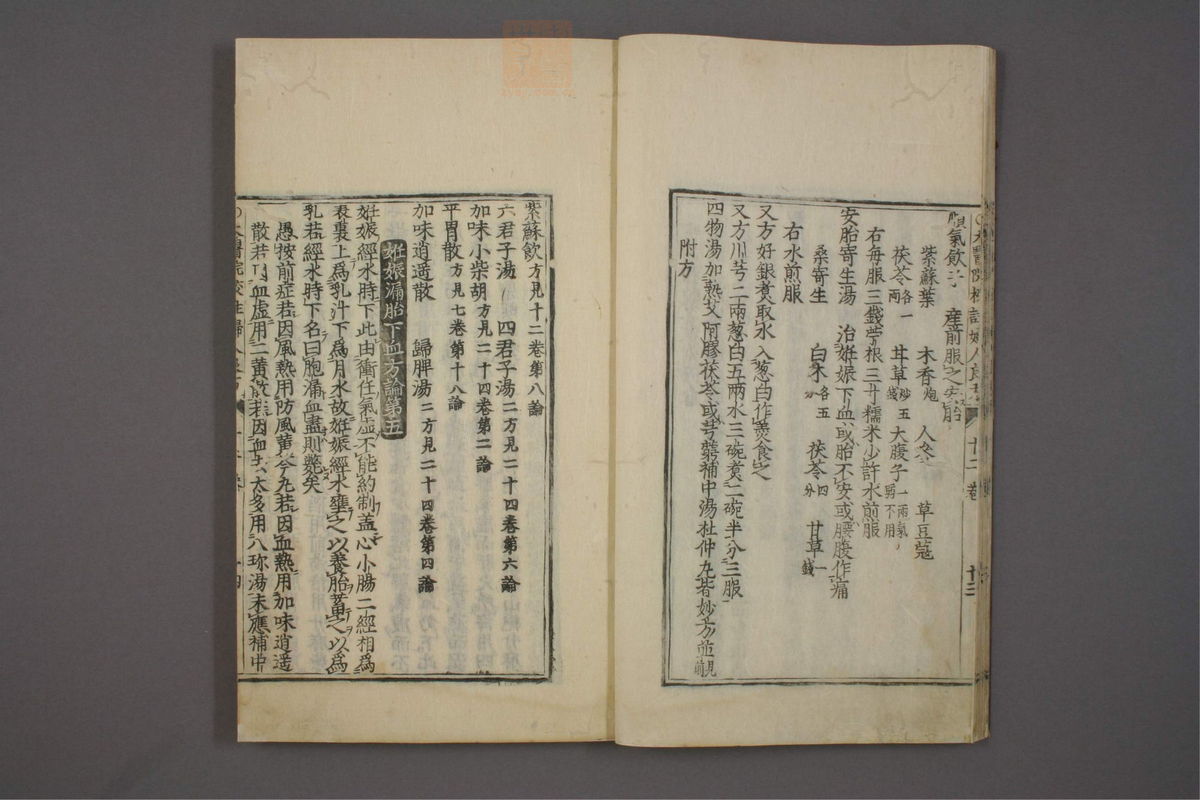 順氣飲子 産前服之安胎
紫蘇葉 木香炮 人參 草豆蔻
茯苓各一兩 甘草炒五錢 大腹子一兩氣弱不用
右毎服三錢苧根三寸糯米少許水煎服
安胎寄生湯 治姙娠下血或胎不安或腰腹作痛
桑寄生 白朮各五分 茯苓四分 甘草一錢
右水煎服
又方好銀煮取水入葱白作羹食之
又方川芎二兩葱白五兩水三碗煮二碗半分三服
四物湯加熟艾阿膠茯苓或芎藭補中湯杜仲丸皆妙方並見前
附方
紫蘇飲方見十二卷第八論
六君子湯 四君子湯二方見二十四卷第六論
加味小柴胡方見二十四卷第二論
平胃散方見七卷第十八論
加味逍遥散 歸脾湯二方見二十四卷第四論
姙娠漏胎下血方論第五
姙娠經水時下此由衝任氣虛不能約制盖心小腸二經相爲
表裏上爲乳汁下爲月水故姙娠經水壅之以養胎蓄之以爲
乳若經水時下名曰胞漏血盡則斃矣
愚按前症若因風熱用防風黄芩丸若因血熱用加味逍遥
散若因血虛用二黄散若因血去太多用八珎湯未應補中